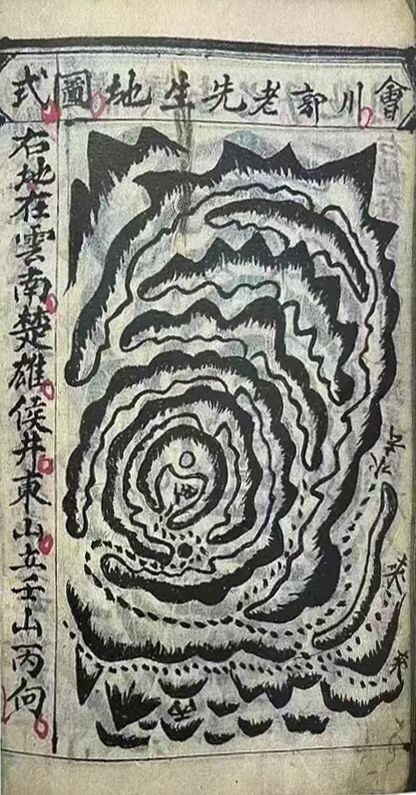 會川郭老先生地圖式
右地在雲南楚雄侯井東山立壬山丙向
丙